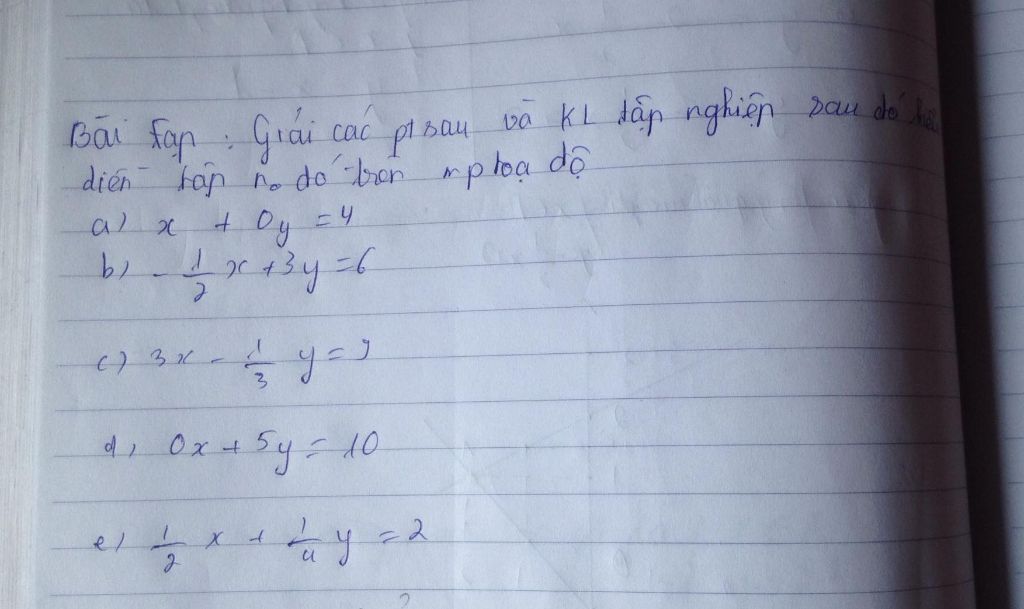 Bài tập : Giải các pt sau và KL tập nghiệm sau đó
diễn tập n₀ đó trên mp toạ độ
a) x + 0y = 4
b) - 1/2 x + 3y = 6
c) 3x - 1/3 y = 9
d) 0x + 5y = 10
e) 1/2 x + 1/4 y = 2